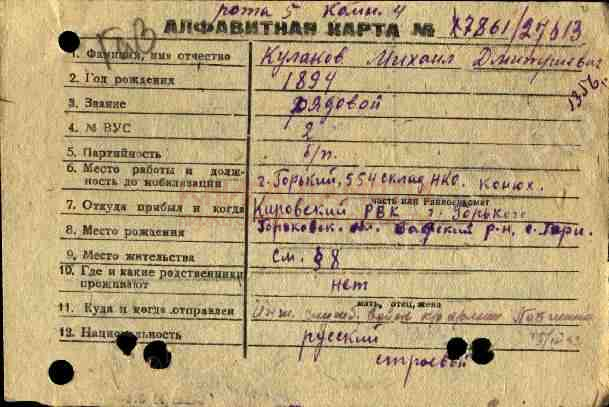 рота 5 Комн. 4
АЛФАВИТНАЯ КАРТА № 17861/27613
1. Фамилия, имя отчество Кулаков Михаил Дмитриевич
2. Год рождения 1894
1356.
3. Звание рядовой
4. № ВУС 2
5. Партийность б/п.
6. Место работы и долж-
ность до мобилизации г. Горький, 554 склад НКО. Конюх.
часть или Райвоенкомат
7. Откуда прибыл и когда Кировский РВК г. Горького
8. Место рождения Горьковск. обл. р-н, с.
9. Место жительства см. § 8
10. Где и какие родственники
проживают нет
мать, отец, жена
11. Куда и когда отправлен
12. Национальность русский
строевой